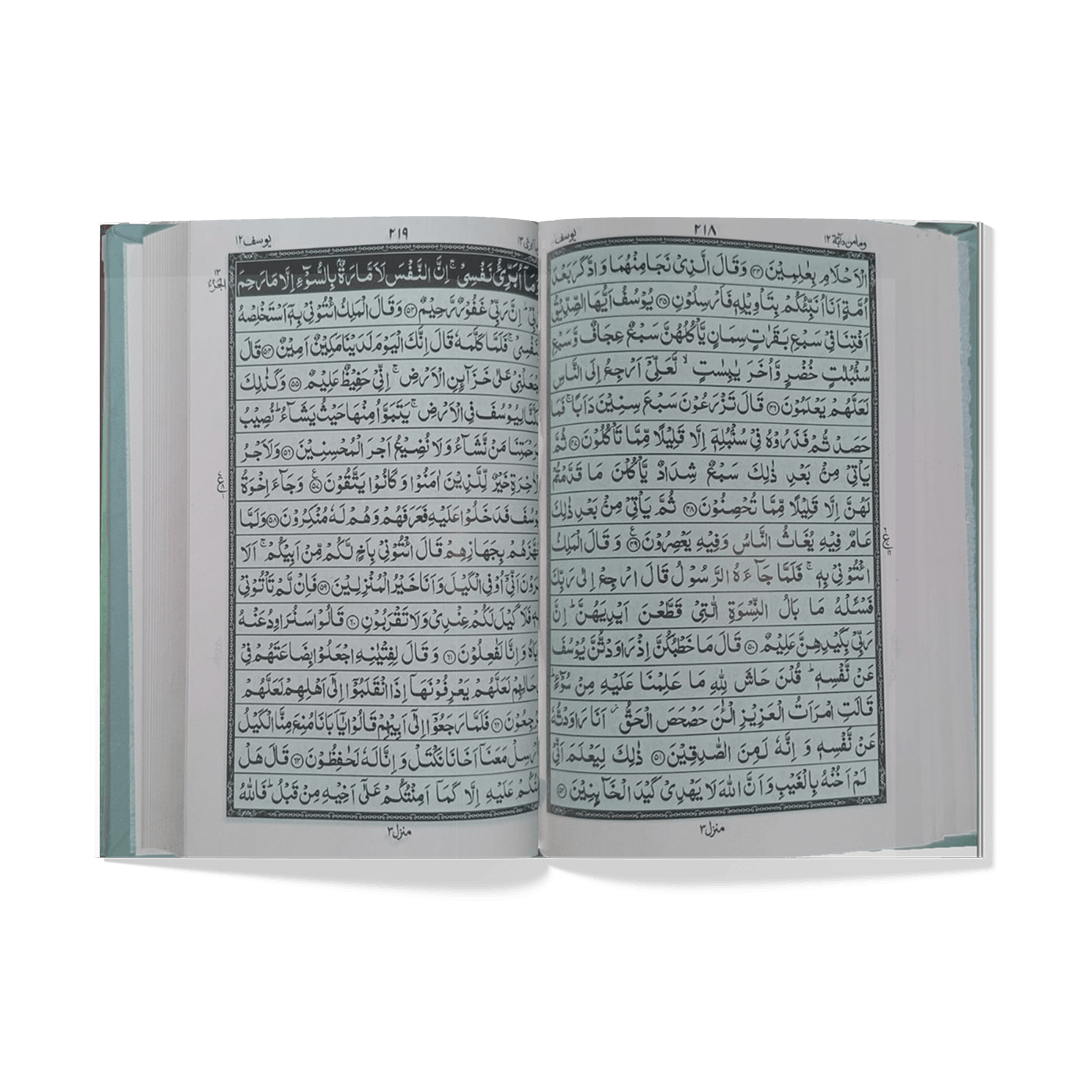 ومامن دآبة ١٢ ٢١٨ يوسف
الْاَحْلَامِ بِعٰلِمِيْنَ ﴿٤٤﴾ وَقَالَ الَّذِيْ نَجَا مِنْهُمَا وَادَّكَرَ بَعْدَ
اُمَّةٍ اَنَا اُنَبِّئُكُمْ بِتَاْوِيْلِهٖ فَاَرْسِلُوْنِ ﴿٤٥﴾ يُوْسُفُ اَيُّهَا الصِّدِّيْقُ
اَفْتِنَا فِيْ سَبْعِ بَقَرٰتٍ سِمَانٍ يَّاْكُلُهُنَّ سَبْعٌ عِجَافٌ وَّسَبْعِ
سُنْۢبُلٰتٍ خُضْرٍ وَّاُخَرَ يٰبِسٰتٍ ۙ لَّعَلِّيْٓ اَرْجِعُ اِلَى النَّاسِ
لَعَلَّهُمْ يَعْلَمُوْنَ ﴿٤٦﴾ قَالَ تَزْرَعُوْنَ سَبْعَ سِنِيْنَ دَاَبًا ۚ فَمَا
حَصَدْتُّمْ فَذَرُوْهُ فِيْ سُنْۢبُلِهٖٓ اِلَّا قَلِيْلًا مِّمَّا تَاْكُلُوْنَ ﴿٤٧﴾ ثُمَّ
يَاْتِيْ مِنْۢ بَعْدِ ذٰلِكَ سَبْعٌ شِدَادٌ يَّاْكُلْنَ مَا قَدَّمْتُمْ
لَهُنَّ اِلَّا قَلِيْلًا مِّمَّا تُحْصِنُوْنَ ﴿٤٨﴾ ثُمَّ يَاْتِيْ مِنْۢ بَعْدِ ذٰلِكَ
عَامٌ فِيْهِ يُغَاثُ النَّاسُ وَفِيْهِ يَعْصِرُوْنَ ﴿٤٩﴾ وَقَالَ الْمَلِكُ
ائْتُوْنِيْ بِهٖ ۚ فَلَمَّا جَآءَهُ الرَّسُوْلُ قَالَ ارْجِعْ اِلٰى رَبِّكَ
فَسْـَٔلْهُ مَا بَالُ النِّسْوَةِ الّٰتِيْ قَطَّعْنَ اَيْدِيَهُنَّ ؕ اِنَّ
رَبِّيْ بِكَيْدِهِنَّ عَلِيْمٌ ﴿٥٠﴾ قَالَ مَا خَطْبُكُنَّ اِذْ رَاوَدْتُّنَّ يُوْسُفَ
عَنْ نَّفْسِهٖ ؕ قُلْنَ حَاشَ لِلّٰهِ مَا عَلِمْنَا عَلَيْهِ مِنْ سُوْٓءٍ
قَالَتِ امْرَاَتُ الْعَزِيْزِ الْـٰٔنَ حَصْحَصَ الْحَقُّ ؗ اَنَا رَاوَدْتُّهٗ
عَنْ نَّفْسِهٖ وَاِنَّهٗ لَمِنَ الصّٰدِقِيْنَ ﴿٥١﴾ ذٰلِكَ لِيَعْلَمَ اَنِّيْ
لَمْ اَخُنْهُ بِالْغَيْبِ وَاَنَّ اللّٰهَ لَا يَهْدِيْ كَيْدَ الْخَآئِنِيْنَ ﴿٥٢﴾
منزل ٣
٢١٩ يوسف ١٢
اُبَرِّئُ نَفْسِيْ ۚ اِنَّ النَّفْسَ لَاَمَّارَةٌۢ بِالسُّوْٓءِ اِلَّا مَا رَحِمَ
اِنَّ رَبِّيْ غَفُوْرٌ رَّحِيْمٌ ﴿٥٣﴾ وَقَالَ الْمَلِكُ ائْتُوْنِيْ بِهٖٓ اَسْتَخْلِصْهُ
فَلَمَّا كَلَّمَهٗ قَالَ اِنَّكَ الْيَوْمَ لَدَيْنَا مَكِيْنٌ اَمِيْنٌ ﴿٥٤﴾ قَالَ
عَلٰى خَزَآئِنِ الْاَرْضِ ۚ اِنِّيْ حَفِيْظٌ عَلِيْمٌ ﴿٥٥﴾ وَكَذٰلِكَ
لِيُوْسُفَ فِي الْاَرْضِ ۚ يَتَبَوَّاُ مِنْهَا حَيْثُ يَشَآءُ ؕ نُصِيْبُ
مَنْ نَّشَآءُ وَلَا نُضِيْعُ اَجْرَ الْمُحْسِنِيْنَ ﴿٥٦﴾ وَلَاَجْرُ
خَيْرٌ لِّلَّذِيْنَ اٰمَنُوْا وَكَانُوْا يَتَّقُوْنَ ﴿٥٧﴾ وَجَآءَ اِخْوَةُ
فَدَخَلُوْا عَلَيْهِ فَعَرَفَهُمْ وَهُمْ لَهٗ مُنْكِرُوْنَ ﴿٥٨﴾ وَلَمَّا
بِجَهَازِهِمْ قَالَ ائْتُوْنِيْ بِاَخٍ لَّكُمْ مِّنْ اَبِيْكُمْ ۚ اَلَا
اَنِّيْٓ اُوْفِي الْكَيْلَ وَاَنَا خَيْرُ الْمُنْزِلِيْنَ ﴿٥٩﴾ فَاِنْ لَّمْ تَاْتُوْنِيْ
فَلَا كَيْلَ لَكُمْ عِنْدِيْ وَلَا تَقْرَبُوْنِ ﴿٦٠﴾ قَالُوْا سَنُرَاوِدُ عَنْهُ
وَاِنَّا لَفٰعِلُوْنَ ﴿٦١﴾ وَقَالَ لِفِتْيٰنِهِ اجْعَلُوْا بِضَاعَتَهُمْ فِيْ
لَعَلَّهُمْ يَعْرِفُوْنَهَآ اِذَا انْقَلَبُوْٓا اِلٰٓى اَهْلِهِمْ لَعَلَّهُمْ
﴿٦٢﴾ فَلَمَّا رَجَعُوْٓا اِلٰٓى اَبِيْهِمْ قَالُوْا يٰٓاَبَانَا مُنِعَ مِنَّا الْكَيْلُ
مَعَنَآ اَخَانَا نَكْتَلْ وَاِنَّا لَهٗ لَحٰفِظُوْنَ ﴿٦٣﴾ قَالَ هَلْ
عَلَيْهِ اِلَّا كَمَآ اَمِنْتُكُمْ عَلٰٓى اَخِيْهِ مِنْ قَبْلُ ؕ فَاللّٰهُ
منزل ٣